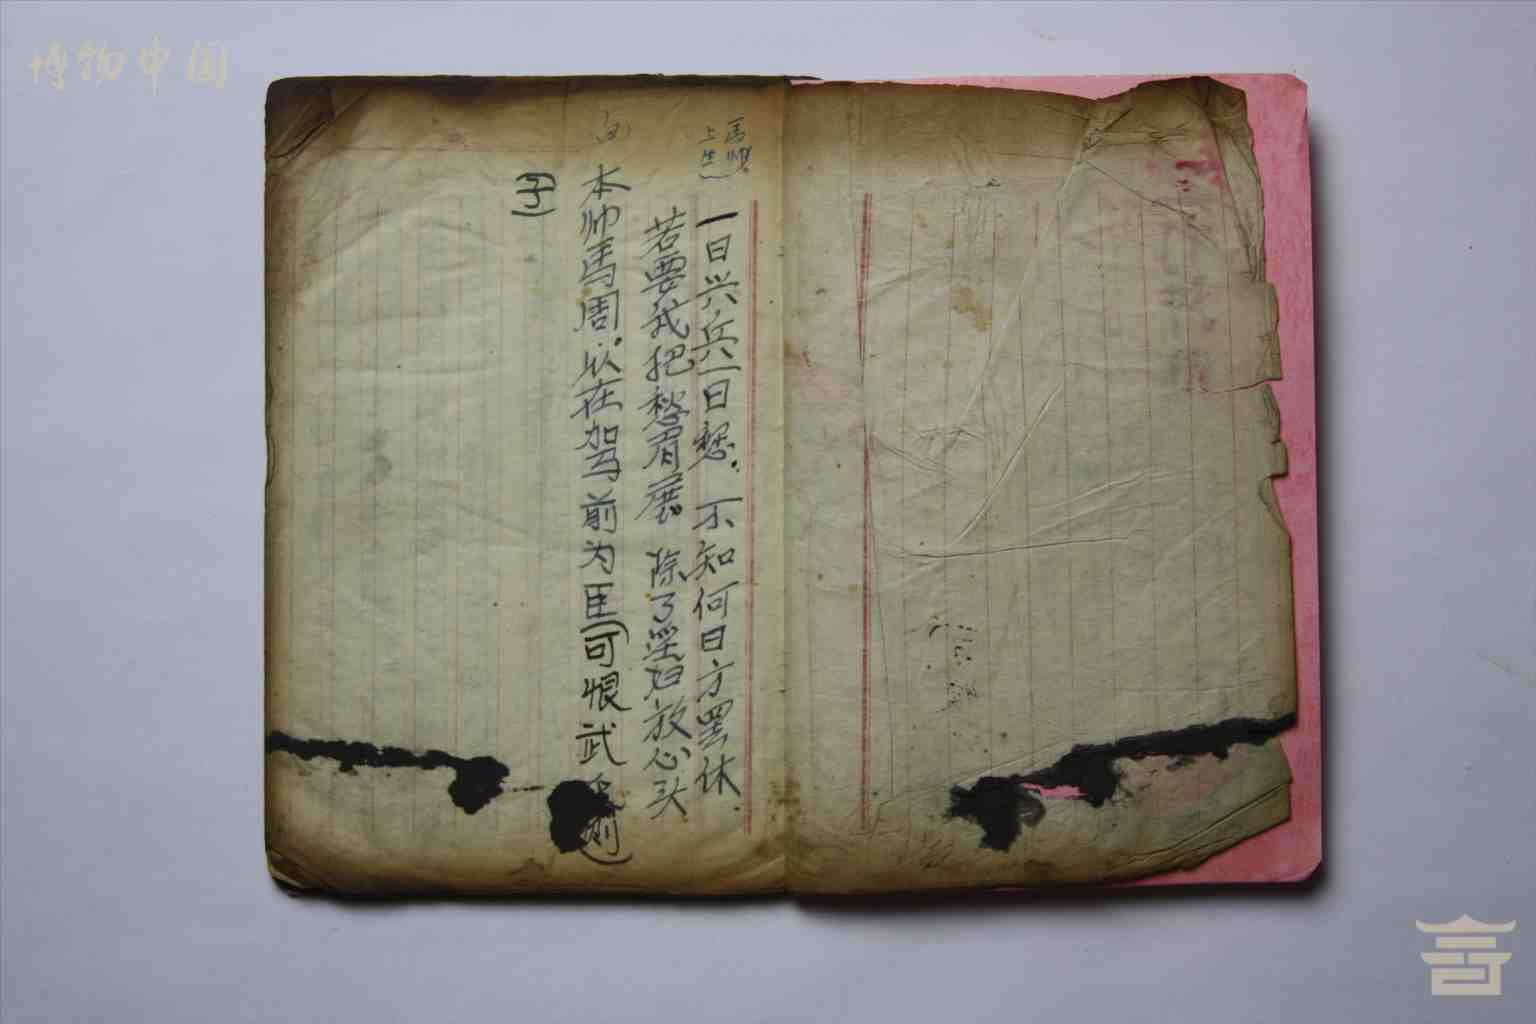 博物中国
馬
上
一日兴兵一日愁．不知何日方罢休．
若要我把愁眉展．除了淫妇放心头
白
本帅馬周．以在驾前为臣（可恨武